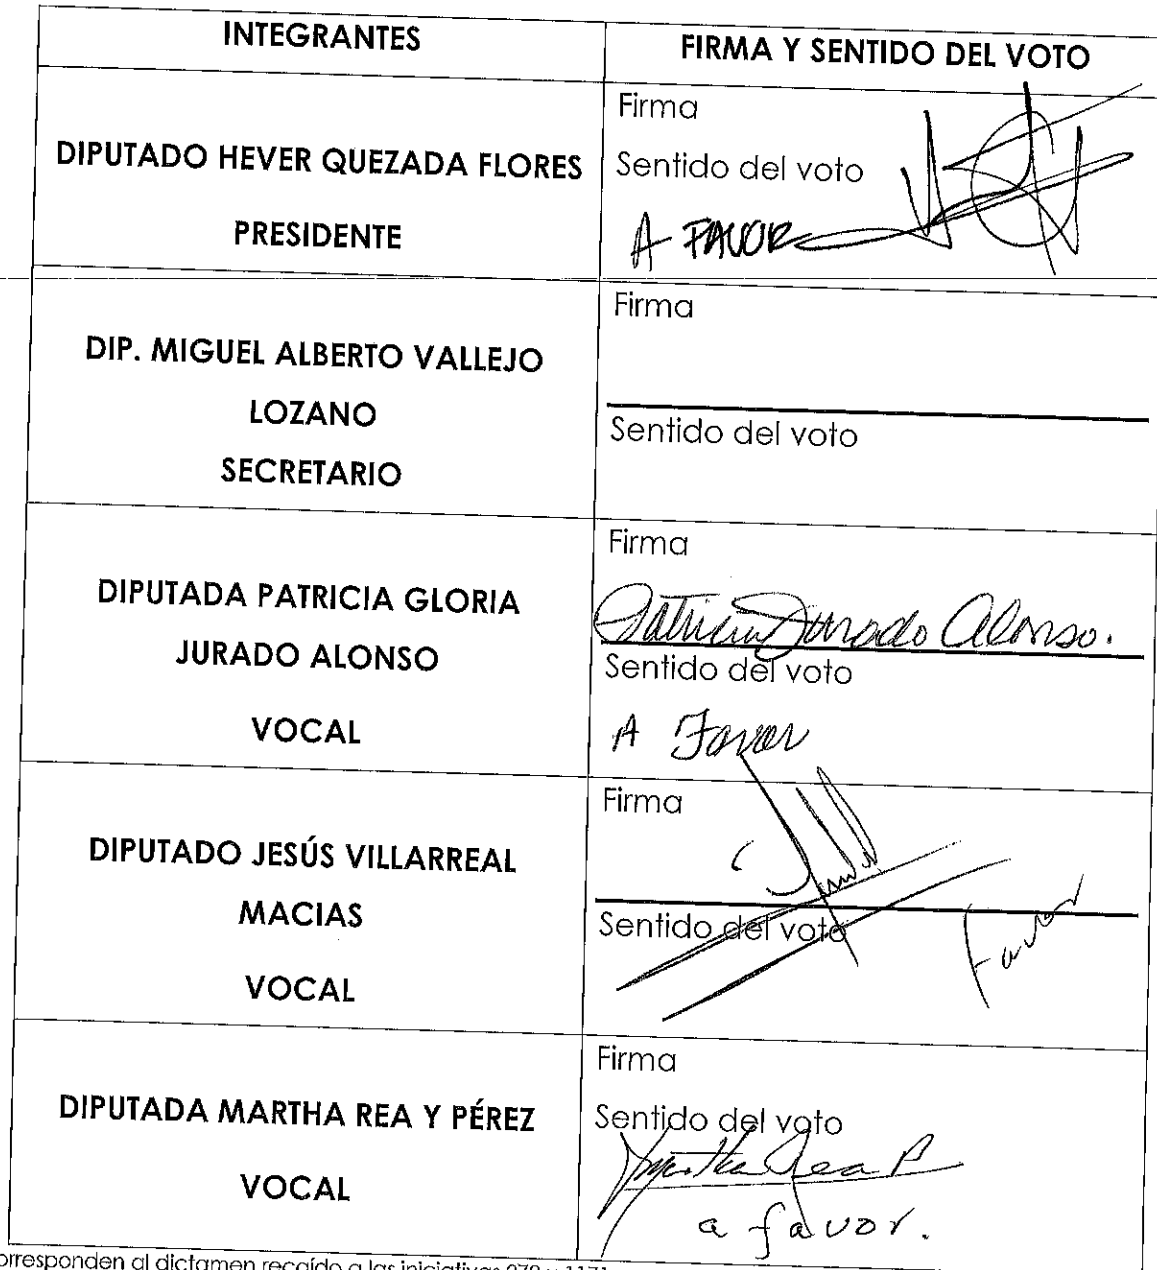 INTEGRANTES
FIRMA Y SENTIDO DEL VOTO
DIPUTADO HEVER QUEZADA FLORES
PRESIDENTE
Firma
Sentido del voto
A FAVOR
DIP. MIGUEL ALBERTO VALLEJO
LOZANO
SECRETARIO
Firma
Sentido del voto
DIPUTADA PATRICIA GLORIA
JURADO ALONSO
VOCAL
Firma
Patricia Jurado Alonso.
Sentido del voto
A Favor
DIPUTADO JESÚS VILLARREAL
MACIAS
VOCAL
Firma
Sentido del voto
Favor
DIPUTADA MARTHA REA Y PÉREZ
VOCAL
Firma
Sentido del voto
Martha Rea P
a favor.
orresponden al dictamen recaído a las iniciativas